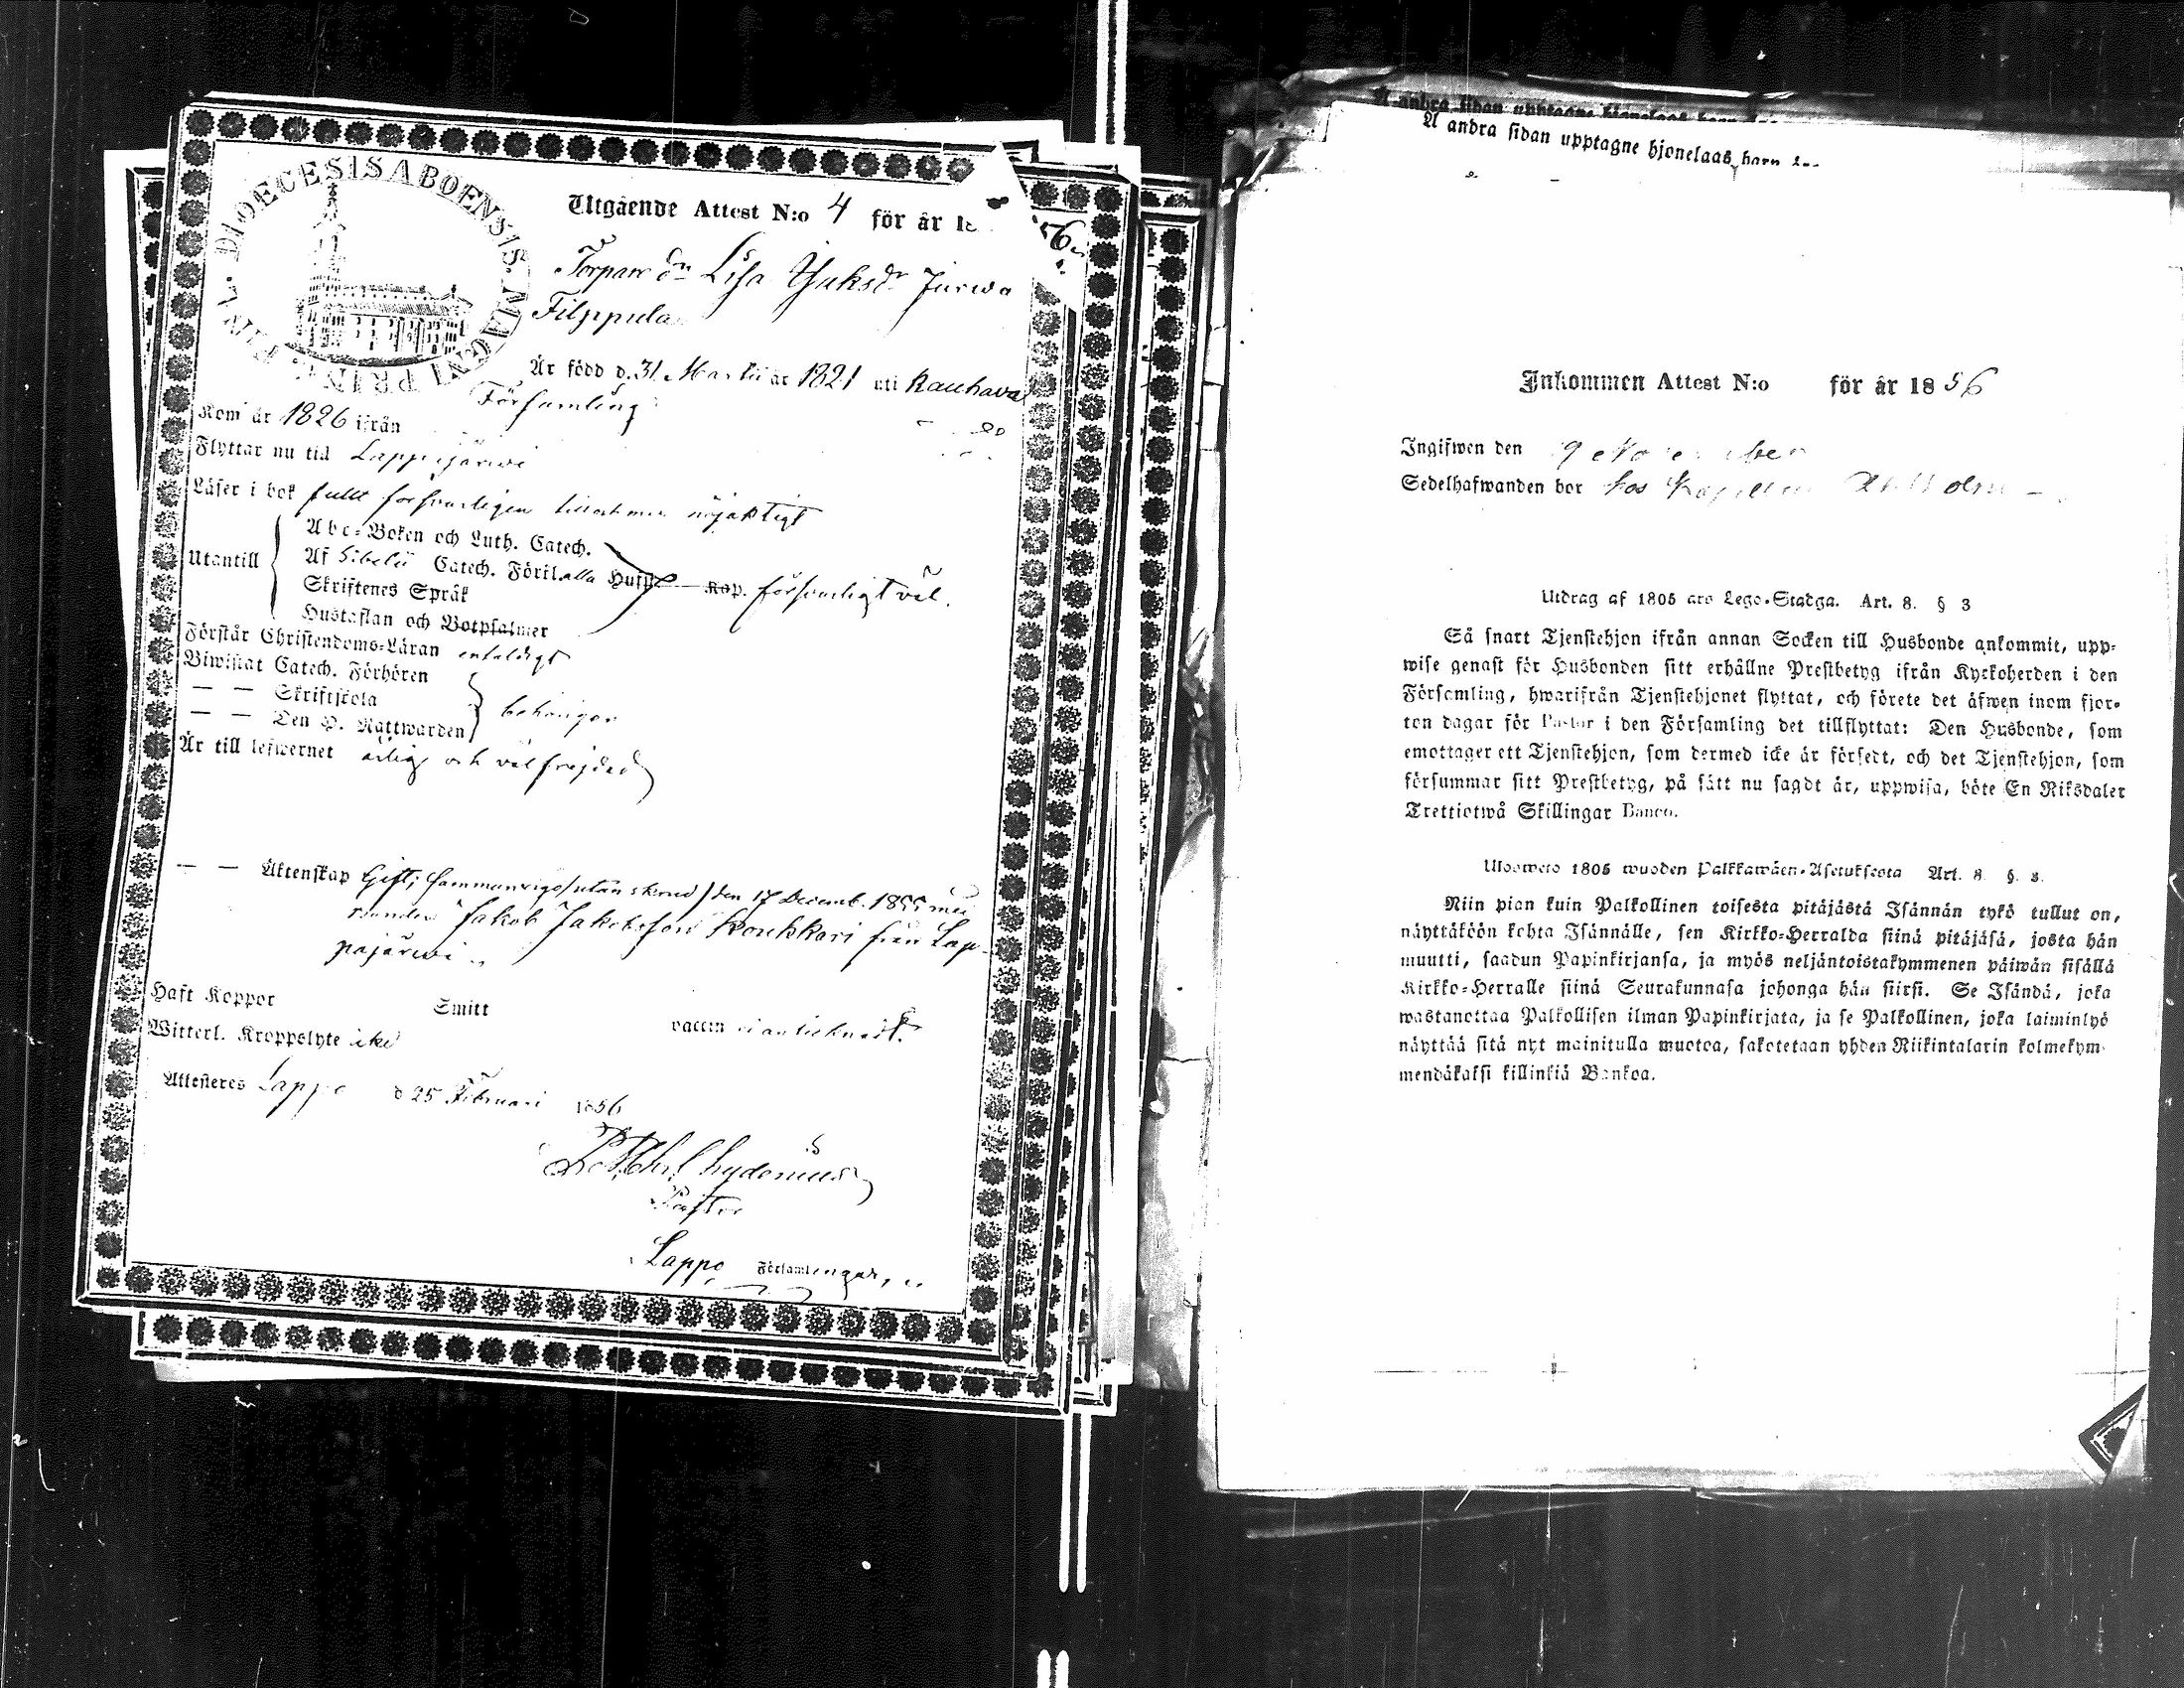 DIOECESIS ABOENSIS. MAGNI PRINC. FINL.
Utgående Attest N:o 4 för år 1856.
Torpare dn Lisa Jjuksdr Jurwa
Filppula
Är född d. 31 Martii år 1821 uti Kauhava
Församling
Kom år 1826 ifrån
Flyttar nu till Lappajärwi
Läser i bok fullt försvarligen nöjaktigt
Utantill
Abc-Boken och Luth. Catech.
Af Sibelii Catech. Förkl. alla Hufst. Kap. försvarligt väl.
Skriftenes Språk
Hustaflan och Botpsalmer
Förstår Christendoms-Läran enfaldigt
Biwistat Catech. Förhören
— — Skriftskola
— — Den H. Nattwarden behörigen
Är till lefwernet ärlig och välfrejdad
— — Äktenskap Gift; sammanvigd (utan skrud) den 17 Decemb. 1855 med
Jakob Jakobsson Koukkari från Lap-
pajärwi
Haft Koppor Smitt vaccin ei antecknadt.
Witterl. Kroppslyte ike
Attesteres Lappo d 25 Februari 1856
Chydenius
Pastor
Lappo Församlingar,
Å andra sidan upptagne hjonelaas barn
Inkommen Attest N:o för år 1856
Ingifwen den 9 November
Sedelhafwanden bor hos Kapellan Ahlholm
Utdrag af 1805 års Lego-Stadga. Art. 8. § 3
Så snart Tjenstehjon ifrån annan Socken till Husbonde ankommit, upp-
wise genast för Husbonden sitt erhållne Prestbetyg ifrån Kyrkoherden i den
Församling, hwarifrån Tjenstehjonet flyttat, och förete det äfwen inom fjor-
ton dagar för Pastor i den Församling det tillflyttat: Den Husbonde, som
emottager ett Tjenstehjon, som dermed icke är försedt, och det Tjenstehjon, som
försummar sitt Prestbetyg, på sätt nu sagdt är, uppwisa, böte En Riksdaler
Trettiotwå Skillingar Banco.
Uloswero 1805 wuoden Palkkawäen-Asetuksesta Art. 8. §. 3.
Niin pian kuin Palkollinen toisesta pitäjästä Isännän tykö tullut on,
näyttäköön kohta Isännälle, sen Kirkko-Herralda siinä pitäjäsä, josta hän
muutti, saadun Papinkirjansa, ja myös neljäntoistakymmenen päiwän sisällä
Kirkko-Herralle siinä Seurakunnasa johonga hän siirsi. Se Isändä, joka
wastanottaa Palkollisen ilman Papinkirjata, ja se Palkollinen, joka laiminlyö
näyttää sitä nyt mainitulla muotoa, sakotetaan yhden Riikintalarin kolmekym-
mendäkaksi killinkiä Bankoa.